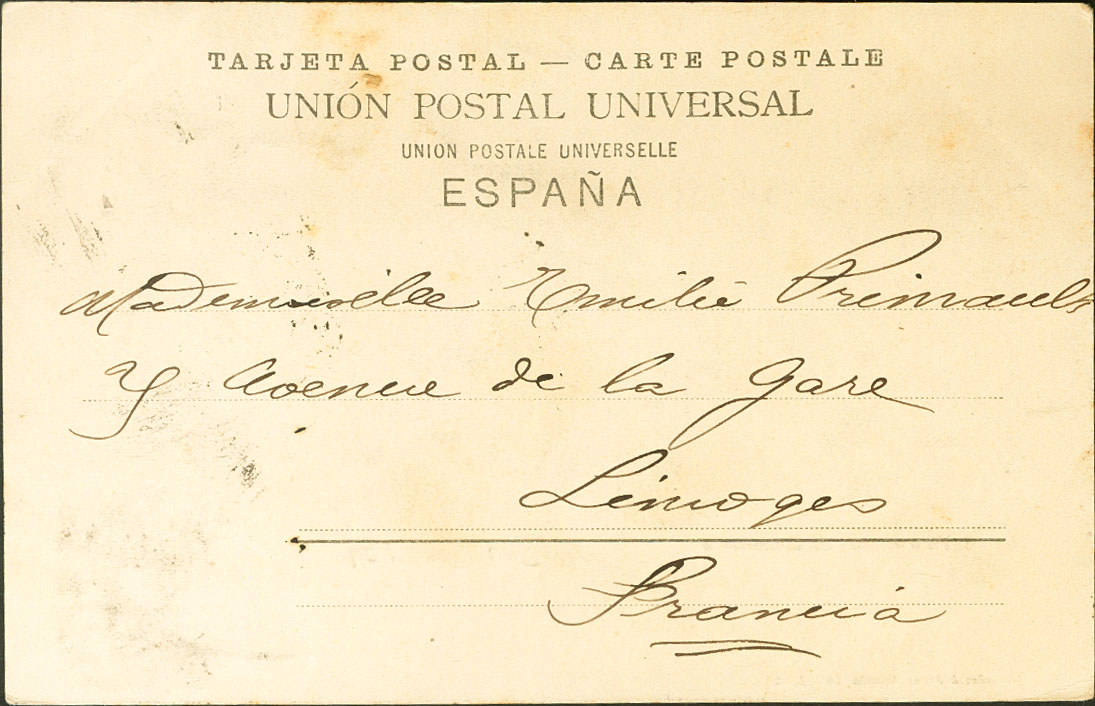 TARJETA POSTAL — CARTE POSTALE
UNIÓN POSTAL UNIVERSAL
UNION POSTALE UNIVERSELLE
ESPAÑA
Mademoiselle Emilie Primault
Avenue de la Gare
Limoges
Francia